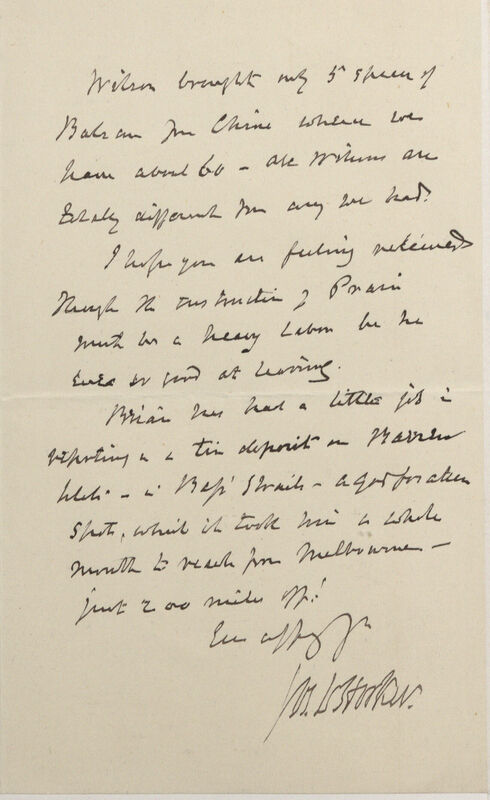 Wilson brought only 5 species of
Balsam from China whence we
have about 60 - all Wilsons are
totally different from any we had.
I hope you are feeling relieved
though the instruction of Prain
must be a heavy labor be he
ever so good at learning.
Brian has had a little job in
reporting on a tin deposit on Barren
Islets - in Bass' Straits - a godforsaken
spot, which it took him a whole
month to reach from Melbourne -
just 200 miles off!
Ever affy yrs
Jos. D. Hooker.